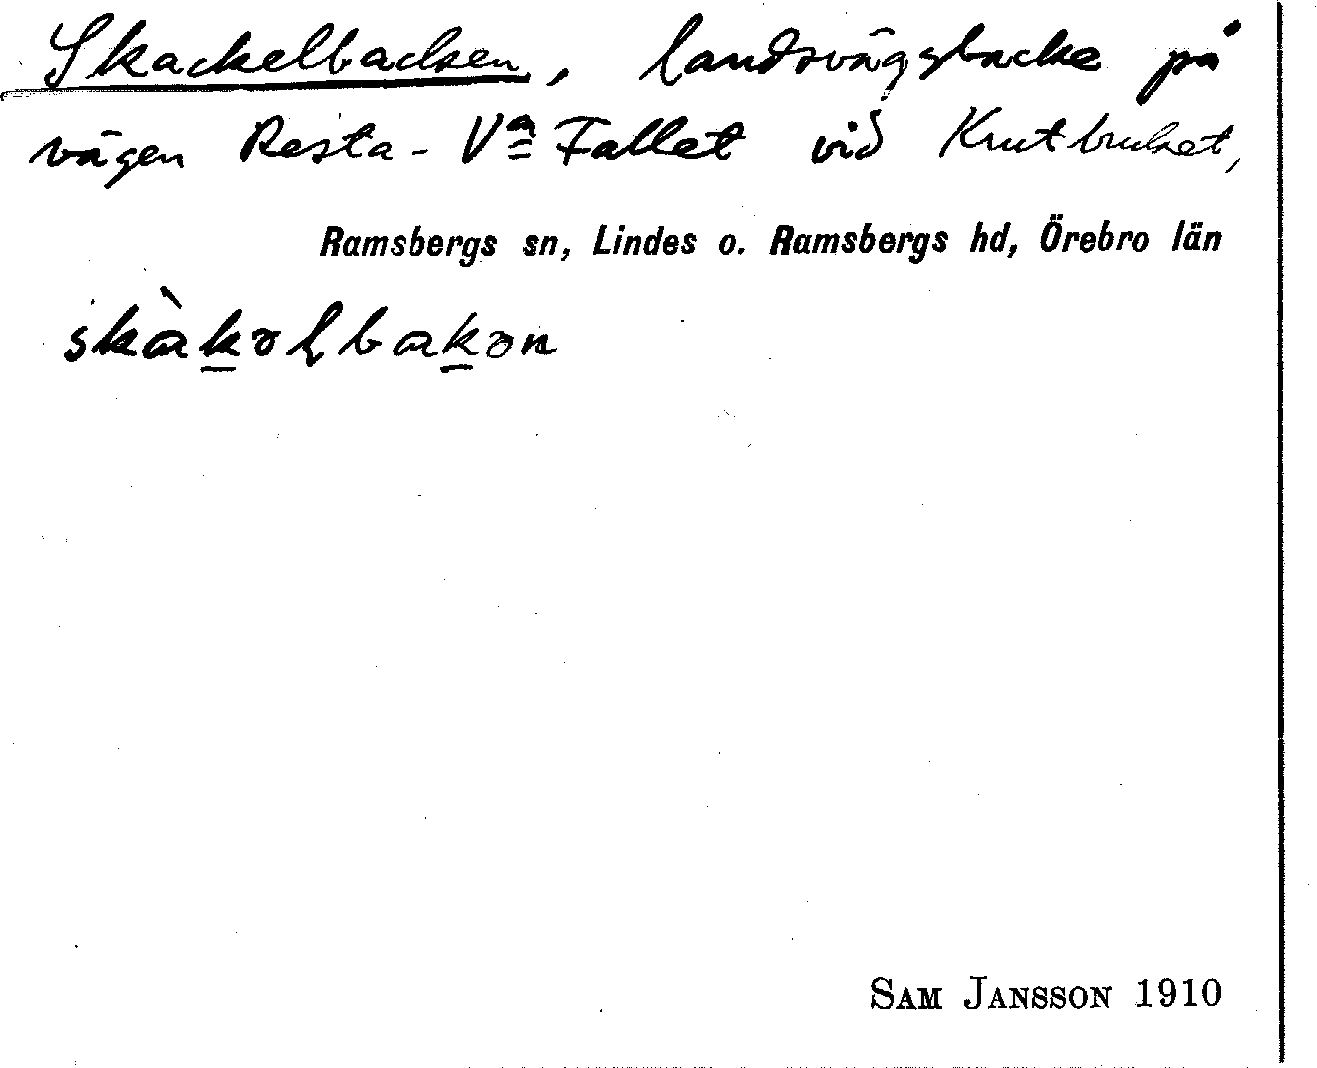 Skackelbacken, landsvägsbacke på
vägen Resta - Va Fallet vid Krutbruket,
Ramsbergs sn, Lindes o. Ramsbergs hd, Örebro län
SAM JANSSON 1910